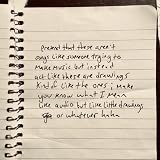 Pretend that these aren't
songs like someone trying to
make music but instead
act like these are drawings
kinda like the ones i make
you know what i mean
like audio but like little drawings
or whatever haha